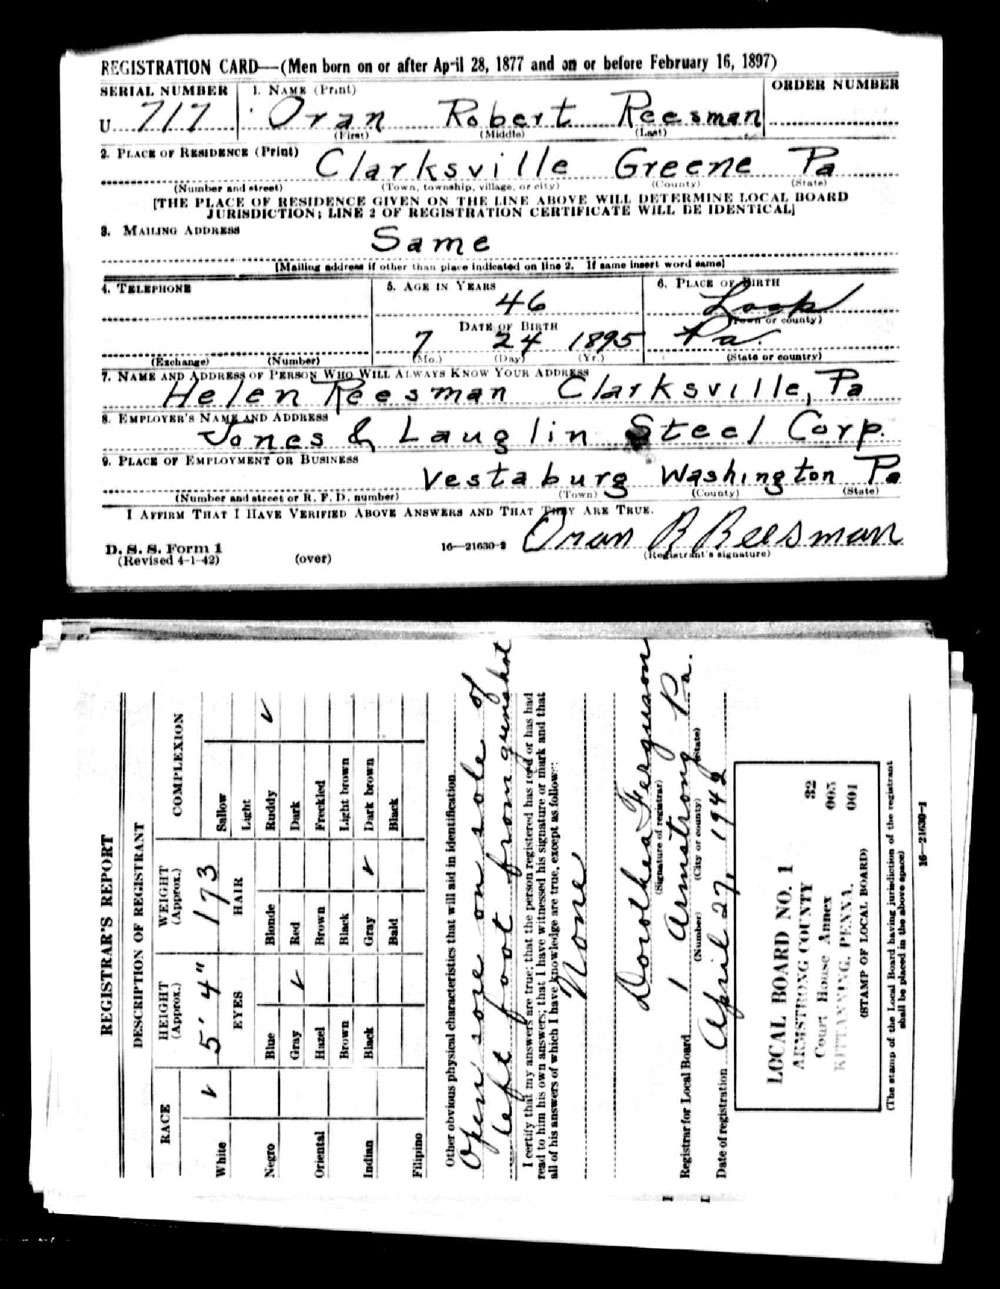 REGISTRATION CARD—(Men born on or after April 28, 1877 and on or before February 16, 1897)
SERIAL NUMBER 1. NAME (Print) ORDER NUMBER
U 717 Oran Robert Reesman
(First) (Middle) (Last)
2. PLACE OF RESIDENCE (Print)
Clarksville Greene Pa
(Number and street) (Town, township, village, or city) (County) (State)
[THE PLACE OF RESIDENCE GIVEN ON THE LINE ABOVE WILL DETERMINE LOCAL BOARD
JURISDICTION; LINE 2 OF REGISTRATION CERTIFICATE WILL BE IDENTICAL]
3. MAILING ADDRESS
Same
[Mailing address if other than place indicated on line 2. If same insert word same]
4. TELEPHONE 5. AGE IN YEARS 6. PLACE OF BIRTH
46 Loop
DATE OF BIRTH (Town or county)
7 24 1895 Pa.
(Exchange) (Number) (Mo.) (Day) (Yr.) (State or country)
7. NAME AND ADDRESS OF PERSON WHO WILL ALWAYS KNOW YOUR ADDRESS
Helen Reesman Clarksville, Pa
8. EMPLOYER'S NAME AND ADDRESS
Jones & Lauglin Steel Corp.
9. PLACE OF EMPLOYMENT OR BUSINESS
Vestaburg Washington Pa
(Number and street or R. F. D. number) (Town) (County) (State)
I AFFIRM THAT I HAVE VERIFIED ABOVE ANSWERS AND THAT THEY ARE TRUE.
D. S. S. Form 1
(Revised 4-1-42) (over) 16—21630-2 Oran R Reesman
(Registrant's signature)
REGISTRAR'S REPORT
DESCRIPTION OF REGISTRANT
RACE HEIGHT (Approx.) WEIGHT (Approx.) COMPLEXION
White ✓ 5' 4" 173 Sallow
EYES HAIR Light
Negro Blue Blonde Ruddy ✓
Gray ✓ Red Dark
Oriental Hazel Brown Freckled
Brown Black Light brown
Indian Black Gray ✓ Dark brown
Bald Black
Filipino
Other obvious physical characteristics that will aid in identification
Open sore on sole of
left foot from gunshot
I certify that my answers are true; that the person registered has read or has had
read to him his own answers; that I have witnessed his signature or mark and that
all of his answers of which I have knowledge are true, except as follows:
None
Dorothea Ferguson
(Signature of registrar)
Registrar for Local Board 1 Armstrong Pa.
(Number) (City or county) (State)
Date of registration April 27, 1942
LOCAL BOARD NO. 1 32
ARMSTRONG COUNTY 005
Court House Annex 001
KITTANNING, PENNA.
(STAMP OF LOCAL BOARD)
(The stamp of the Local Board having jurisdiction of the registrant
shall be placed in the above space)
16—21630-1